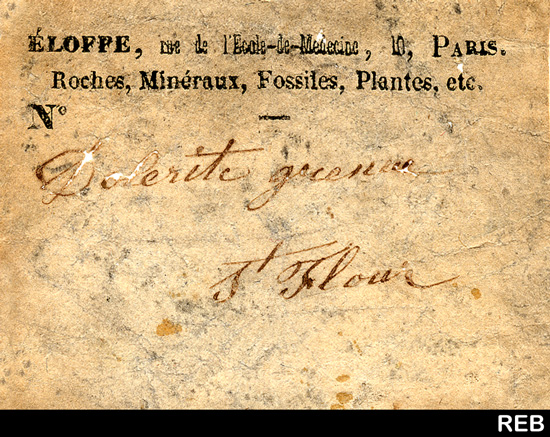 ÉLOFFE, rue de l'Ecole-de-Médecine, 10, PARIS.
Roches, Minéraux, Fossiles, Plantes, etc.
N°
Dolerite
St Flour
REB